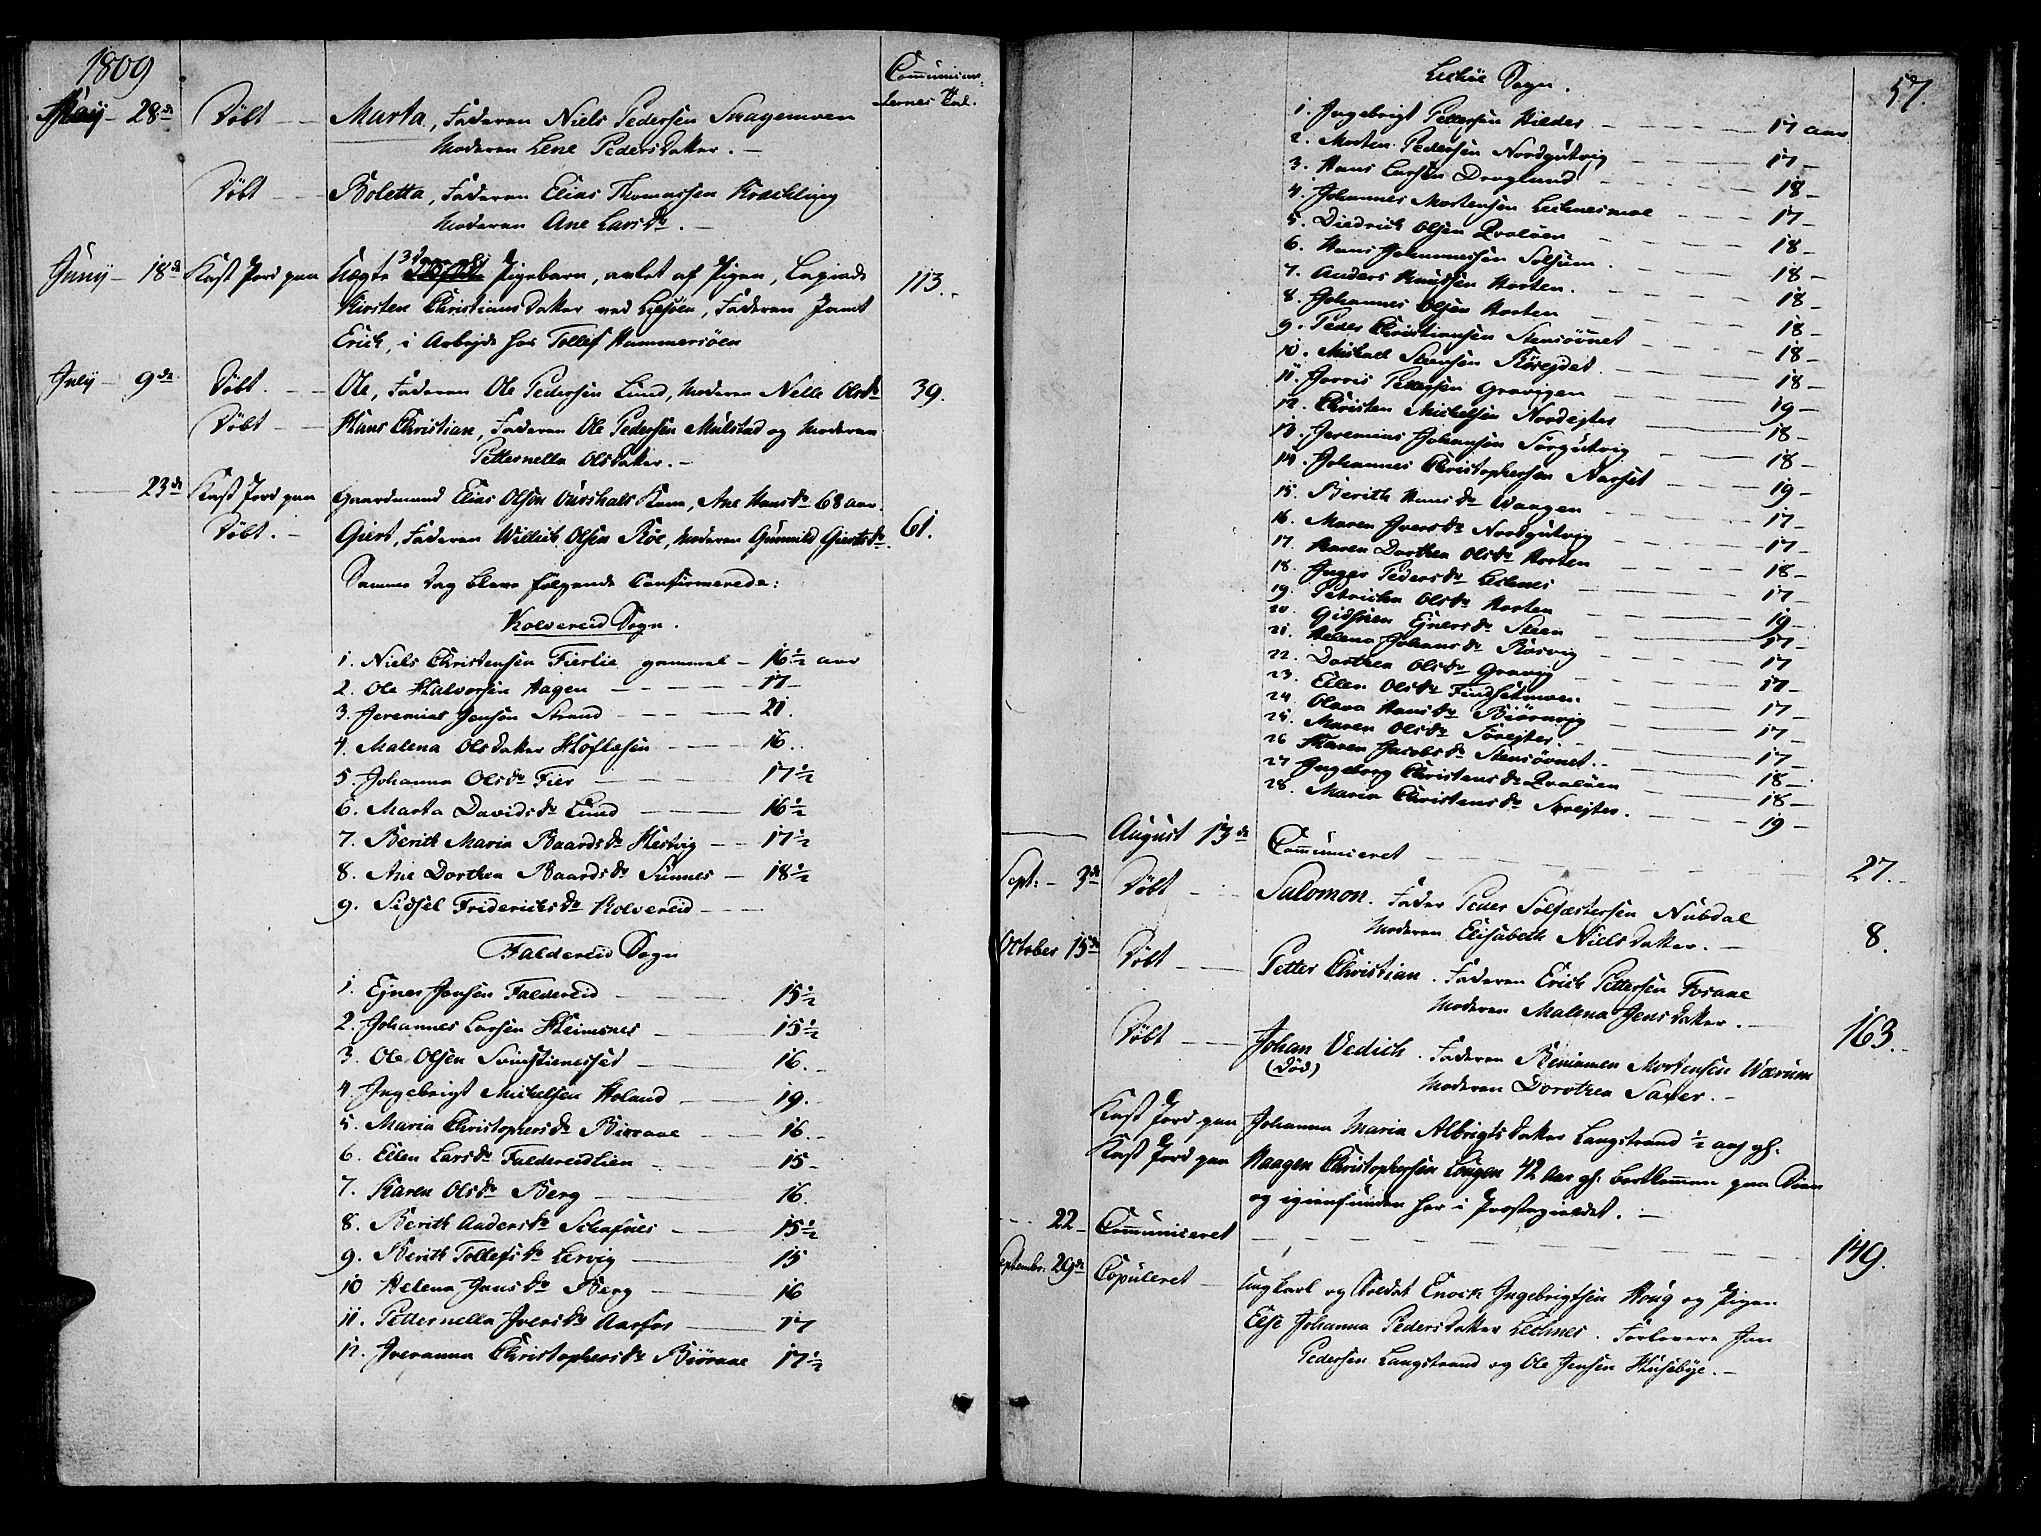 1809
Communican-
ternes Tal.
May - 28de Døbt - Marta, Faderen Niels Pedersen Skagemoen
Moderen Lene Pedersdatter. -
Døbt - Boletta, Faderen Elias Thomassen
Moderen Ane Larsdr. -
Juny - 18de Kast Jord paa Pigebarn, avlet af Pigen,
Kirsten Christiansdatter ved, Faderen
Erich, i Arbejde hos Tollef Hummersöen
113.
July - 9de Døbt. - Ole, Faderen Ole Pedersen Lund, Moderen Nelle Olsdr 39.
Døbt - Hans Christian, Faderen Ole Pedersen Mulstad og Moderen
Petternella Olsdatter. -
23de Kast Jord paa Gaardmand Elias Olsen Kone, Ane Hansdr 68 aar.
Døbt. - Giert, Faderen Willich Olsen Röe, Moderen Gunnild Giertsdr. 61.
Samme Dag bleve følgende Confirmerede:
Kolvereid Sogn.
1. Niels Christensen Fierlie gammel - 16½ aar
2. Ole Halvorsen Hagen - 17 -
3. Jeremias Jensen Strand - 21.
4. Malena Olsdatter Höflesen - 16.
5 Johanna Olsdr Fier - 17½
6. Marta Davidsdr Lund - 16½
7. Berith Maria Baardsdr Hestvig - 17½
8. Ane Dorthea Baardsdr Sünnes - 18½
9. Sidsel Friderichsdr Kolvereid - -
Faldereid Sogn
1. Ejner Jensen Faldereid - 15½
2. Johannes Larsen Heimsnes - 15½
3. Ole Olsen - 16. -
4 Ingebrigt Michelsen Holand - 19. -
5. Maria Christophersdr Biöraae - 16. -
6. Ellen Larsdr Faldereidlien - 15 -
7. Karen Olsdr Berg - 16.
8. Berith Andersdr - 15½
9. Berith Tollefsdr Lervig - 15
10 Helena Jensdr Berg - 16
11. Petternella Iversdr Aarfor - 17
12. Iveranna Christophersdr Biöraae 17½
57.
Lechöe Sogn.
1. Ingebrigt Pettersen Kilder - 17 aar
2. Morten Pedersen Nordgutvig - 17 -
3. Hans Larsen Draglund - 18 -
4. Johannes Mortensen Lechnesmoe - 17 -
5. Diedrich Olsen Qvalöen - 18 -
6. Hans Johannessen Solsem - 18 -
7. Anders Knudsen Horten. - 18 -
8. Johannes Olsen Horten - 18 -
9. Peder Christiansen Stensövnet - 18 -
10. Michael Steensen - 18 -
11. Jorris Pettersen Gravigen - 19 -
12. Christen Michelsen Nordejter - 18 -
13. Jeremias Johansen Sörgutvig - 18 -
14. Johannes Christophersen Aarset - 19 -
15. Berith Hansdr Waagen - 17 -
16. Maren Iversdr Nordgutvig - 17 -
17. Karen Dorthea Olsdr Horten - 18 -
18. Inger Pedersdr Lechnes - 17 -
19. Petricha Olsdr Horten - 19 -
20. Ejnersdr Steen - 17 -
21. Helena Johansdr Rösvig - 17
22. Dorthea Olsdr Gravig - 17 -
23. Ellen Olsdr Findsetmoen - 17 -
24. Olava Hansdr Biörnvig - 17 -
25. Maren Olsdr Sörejter. - 17 -
26 Maren Jacobsdr Stensövnet. - 18 -
27 Ingeborg Christensdr Qvalöen - 18 -
28. Maria Christensdr Sörejter. - 19 -
August 13de Communiceret - 27. -
Sept: - 3de Døbt - Salomon. Fader Peder Solfæstersen Nubdal
Moderen Elisabeth Nielsdatter. - 8.
October 15de Døbt - Petter Christian. Faderen Erich Pettersen Fosaae
Moderen Malena Jensdatter. - 163. -
Døbt - Johan Vedich. Faderen Beniamen Mortensen Wærum
(Død) Moderen Dorothea Saxter. -
Kast Jord paa Johanna Maria Albrigtsdatter Langstrand ½ aar gl.
Kast Jord paa Haagen Christophersen Longen 42 Aar gl. bortkommen paa Søen
og igienfunden her i Præstegieldet. -
22 - Communiceret - 149.
Septembr. 29de Copuleret - Ungkarl og Soldat Enoch Ingebrigtsen Houg og Pigen
Else Johanna Pedersdatter Lechnes. Forlovere Jon
Pedersen Langstrand og Ole Jensen Husebye. -